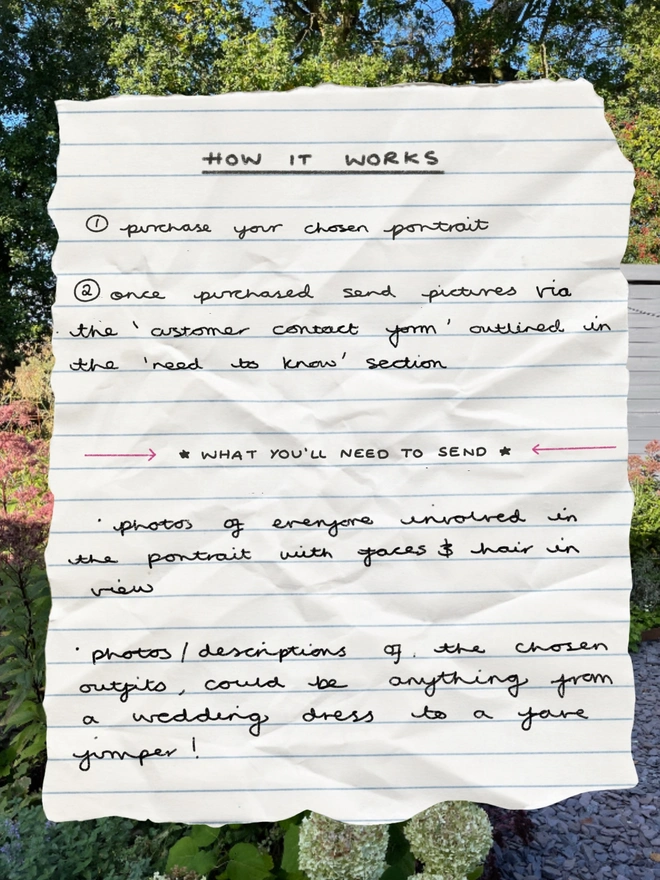 HOW IT WORKS
① purchase your chosen portrait
② once purchased send pictures via
the 'customer contact form' outlined in
the 'need to know' section
→ * WHAT YOU'LL NEED TO SEND * ←
· photos of everyone involved in
the portrait with faces & hair in
view
· photos/descriptions of the chosen
outfits, could be anything from
a wedding dress to a fave
jumper!